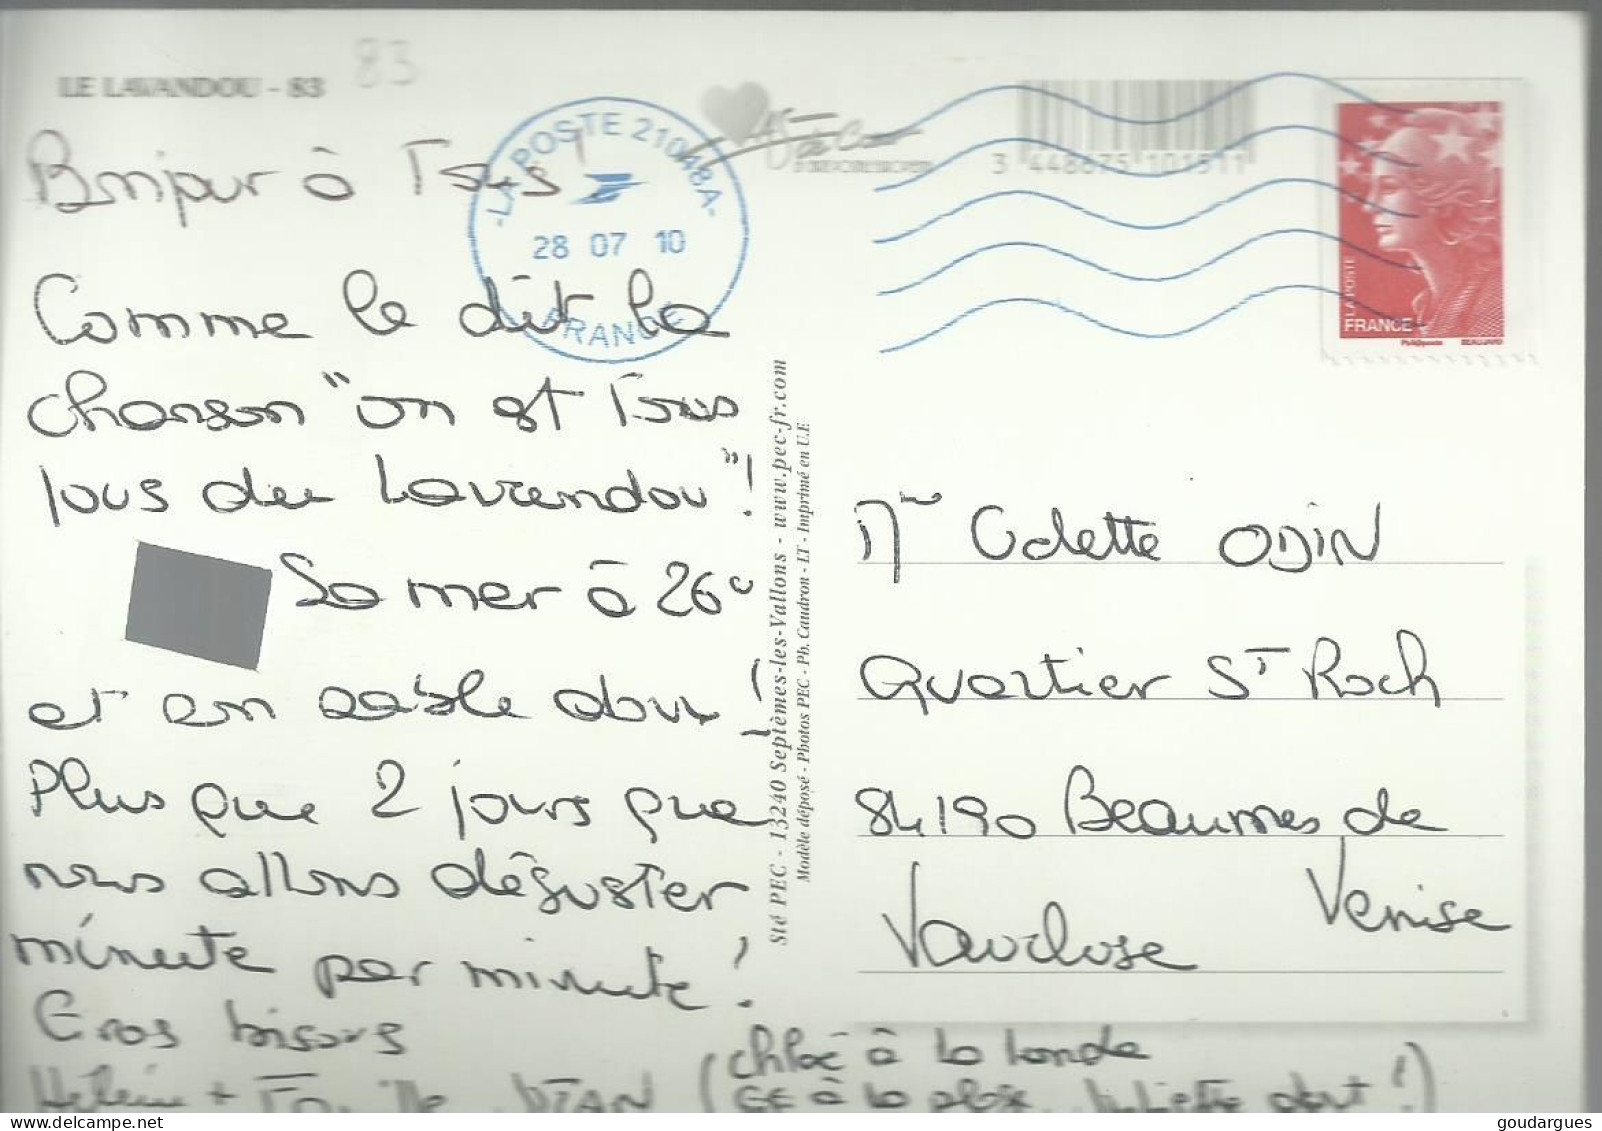 LE LAVANDOU - 83
83
Bonjour à Tous !
Comme le dit la
chanson "on est Tous
fous du Lavandou" !
La mer à 26°
et un sable doux !
Plus que 2 jours que
nous allons déguster
minute par minute !
Gros bisous
+
(Chloé à la londe
à la plage Juliette dort !)
LA POSTE 21048A
28 07 10
FRANCE
3 448675 101511
LA POSTE
FRANCE
Phil@poste BEAUJARD
Sté PEC - 13240 Septèmes-les-Vallons - www.pec-fr.com
Modèle déposé - Photos PEC - Ph. Caudron - LT - Imprimé en U.E
Mme Odette ODIN
Quartier ST Roch
84190 Beaumes de
Venise
Vaucluse
goudargues